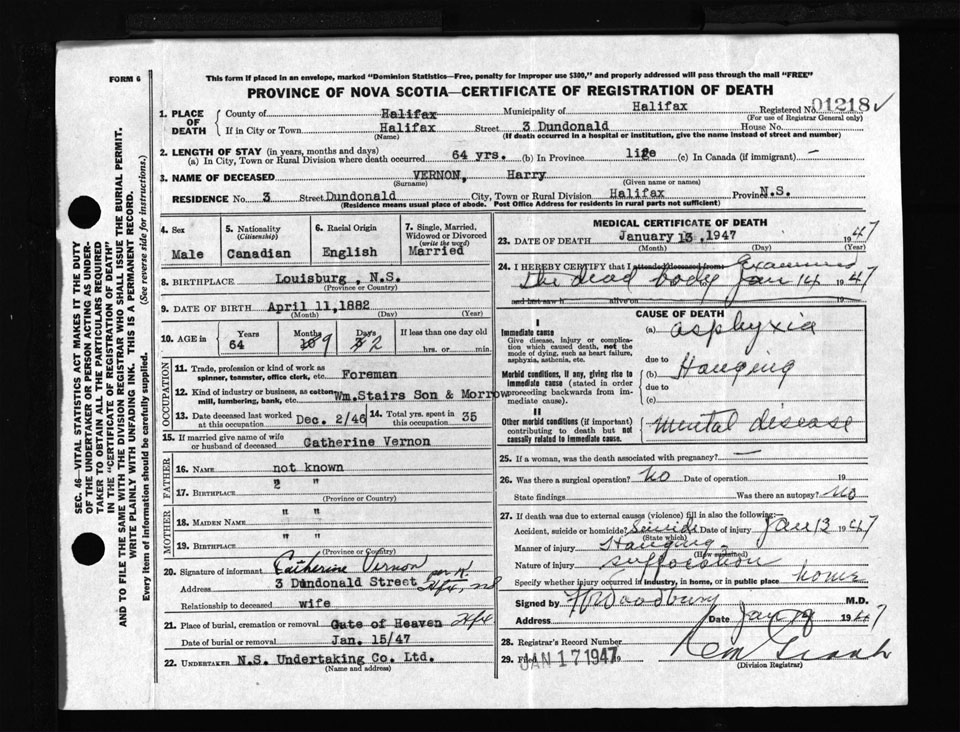 FORM 6
This form if placed in an envelope, marked "Dominion Statistics—Free, penalty for improper use $300," and properly addressed will pass through the mail "FREE"
PROVINCE OF NOVA SCOTIA—CERTIFICATE OF REGISTRATION OF DEATH
1. PLACE OF DEATH
County of Halifax Municipality of Halifax Registered No. 01218 ✓
(For use of Registrar General only)
If in City or Town Halifax Street 3 Dundonald House No.
(Name) (If death occurred in a hospital or institution, give the name instead of street and number)
2. LENGTH OF STAY (in years, months and days)
(a) In City, Town or Rural Division where death occurred 64 yrs. (b) In Province life (c) In Canada (if immigrant) —
3. NAME OF DECEASED VERNON, Harry
(Surname) (Given name or names)
RESIDENCE No. 3 Street Dundonald City, Town or Rural Division Halifax Province N.S.
(Residence means usual place of abode. Post Office Address for residents in rural parts not sufficient)
4. Sex
Male
5. Nationality
(Citizenship)
Canadian
6. Racial Origin
English
7. Single, Married, Widowed or Divorced
(write the word)
Married
8. BIRTHPLACE Louisburg, N.S.
(Province or Country)
9. DATE OF BIRTH April 11, 1882
(Month) (Day) (Year)
10. AGE in
Years Months Days If less than one day old
64 9 2 hrs. or min.
OCCUPATION
11. Trade, profession or kind of work as spinner, teamster, office clerk, etc. Foreman
12. Kind of industry or business, as cotton mill, lumbering, bank, etc. Wm. Stairs Son & Morrow
13. Date deceased last worked at this occupation Dec. 2/46
14. Total yrs. spent in this occupation 35
15. If married give name of wife or husband of deceased Catherine Vernon
FATHER
16. NAME not known
17. BIRTHPLACE " "
(Province or Country)
MOTHER
18. MAIDEN NAME " "
19. BIRTHPLACE " "
(Province or Country)
20. Signature of informant Catherine Vernon
Address 3 Dundonald Street
Relationship to deceased wife
21. Place of burial, cremation or removal Gate of Heaven
Date of burial or removal Jan. 15/47
22. UNDERTAKER N.S. Undertaking Co. Ltd.
(Name and address)
MEDICAL CERTIFICATE OF DEATH
23. DATE OF DEATH January 13, 1947 1947
(Month) (Day) (Year)
24. I HEREBY CERTIFY that I attended deceased from Examined
the dead body Jan 14 1947
and last saw h alive on 19
CAUSE OF DEATH
I
Immediate cause
Give disease, injury or complication which caused death, not the mode of dying, such as heart failure, asphyxia, asthenia, etc.
(a) asphyxia
due to
Morbid conditions, if any, giving rise to immediate cause (stated in order proceeding backwards from immediate cause).
(b) Hanging
due to
(c)
II
Other morbid conditions (if important) contributing to death but not causally related to immediate cause.
mental disease
25. If a woman, was the death associated with pregnancy? —
26. Was there a surgical operation? no Date of operation 19
State findings Was there an autopsy? no
27. If death was due to external causes (violence) fill in also the following:—
Accident, suicide or homicide? Suicide Date of injury Jan 13 1947
(State which)
Manner of injury Hanging
(How sustained)
Nature of injury suffocation
Specify whether injury occurred in industry, in home, or in public place home
Signed by Woodbury M.D.
Address Date Jan 1947
28. Registrar's Record Number
29. Filed JAN 17 1947 19
(Division Registrar)
SEC. 46—VITAL STATISTICS ACT MAKES IT THE DUTY
OF THE UNDERTAKER OR PERSON ACTING AS UNDER-
TAKER TO OBTAIN ALL THE PARTICULARS REQUIRED
IN THE "CERTIFICATE OF REGISTRATION OF DEATH"
AND TO FILE THE SAME WITH THE DIVISION REGISTRAR WHO SHALL ISSUE THE BURIAL PERMIT.
WRITE PLAINLY WITH UNFADING INK. THIS IS A PERMANENT RECORD.
Every item of information should be carefully supplied. (See reverse side for instructions.)